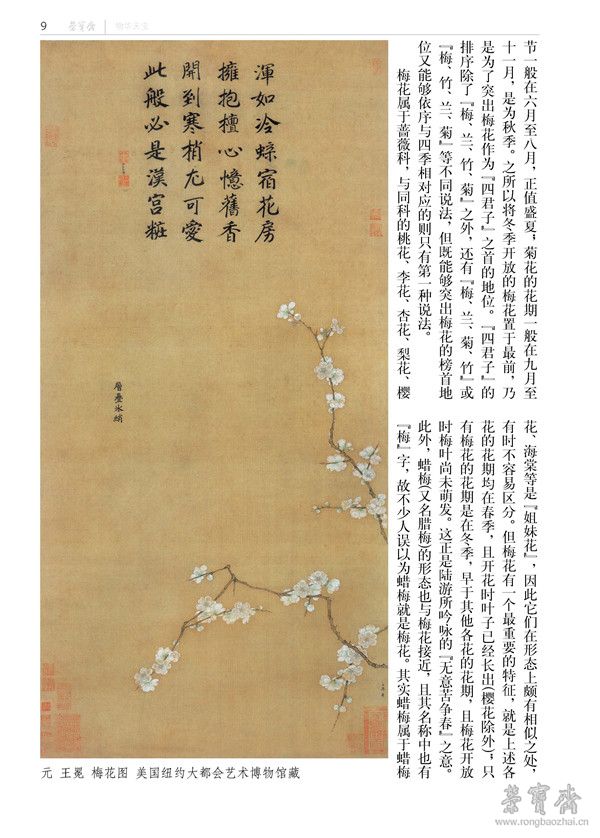 9
荣宝斋
物华天宝
节一般在六月至八月，正值盛夏；菊花的花期一般在九月至
十一月，是为秋季。之所以将冬季开放的梅花置于最前，乃
是为了突出梅花作为『四君子』之首的地位。『四君子』的
排序除了『梅、兰、竹、菊』之外，还有『梅、兰、菊、竹』或
『梅、竹、兰、菊』等不同说法，但既能够突出梅花的榜首地
位又能够依序与四季相对应的则只有第一种说法。
梅花属于蔷薇科，与同科的桃花、李花、杏花、梨花、樱
花、海棠等是『姐妹花』，因此它们在形态上颇有相似之处，
有时不容易区分。但梅花有一个最重要的特征，就是上述各
花的花期均在春季，且开花时叶子已经长出(樱花除外)；只
有梅花的花期是在冬季，早于其他各花的花期，且梅花开放
时梅叶尚未萌发。这正是陆游所吟咏的『无意苦争春』之意。
此外，蜡梅(又名腊梅)的形态也与梅花接近，且其名称中也有
『梅』字，故不少人误以为蜡梅就是梅花。其实蜡梅属于蜡梅
渾如冷蜨宿花房
擁抱檀心憶舊香
開到寒梢尤可愛
此般必是漢宮粧
層疊冰綃
元 王冕 梅花图 美国纽约大都会艺术博物馆藏
榮寶齋
www.rongbaozhai.cn